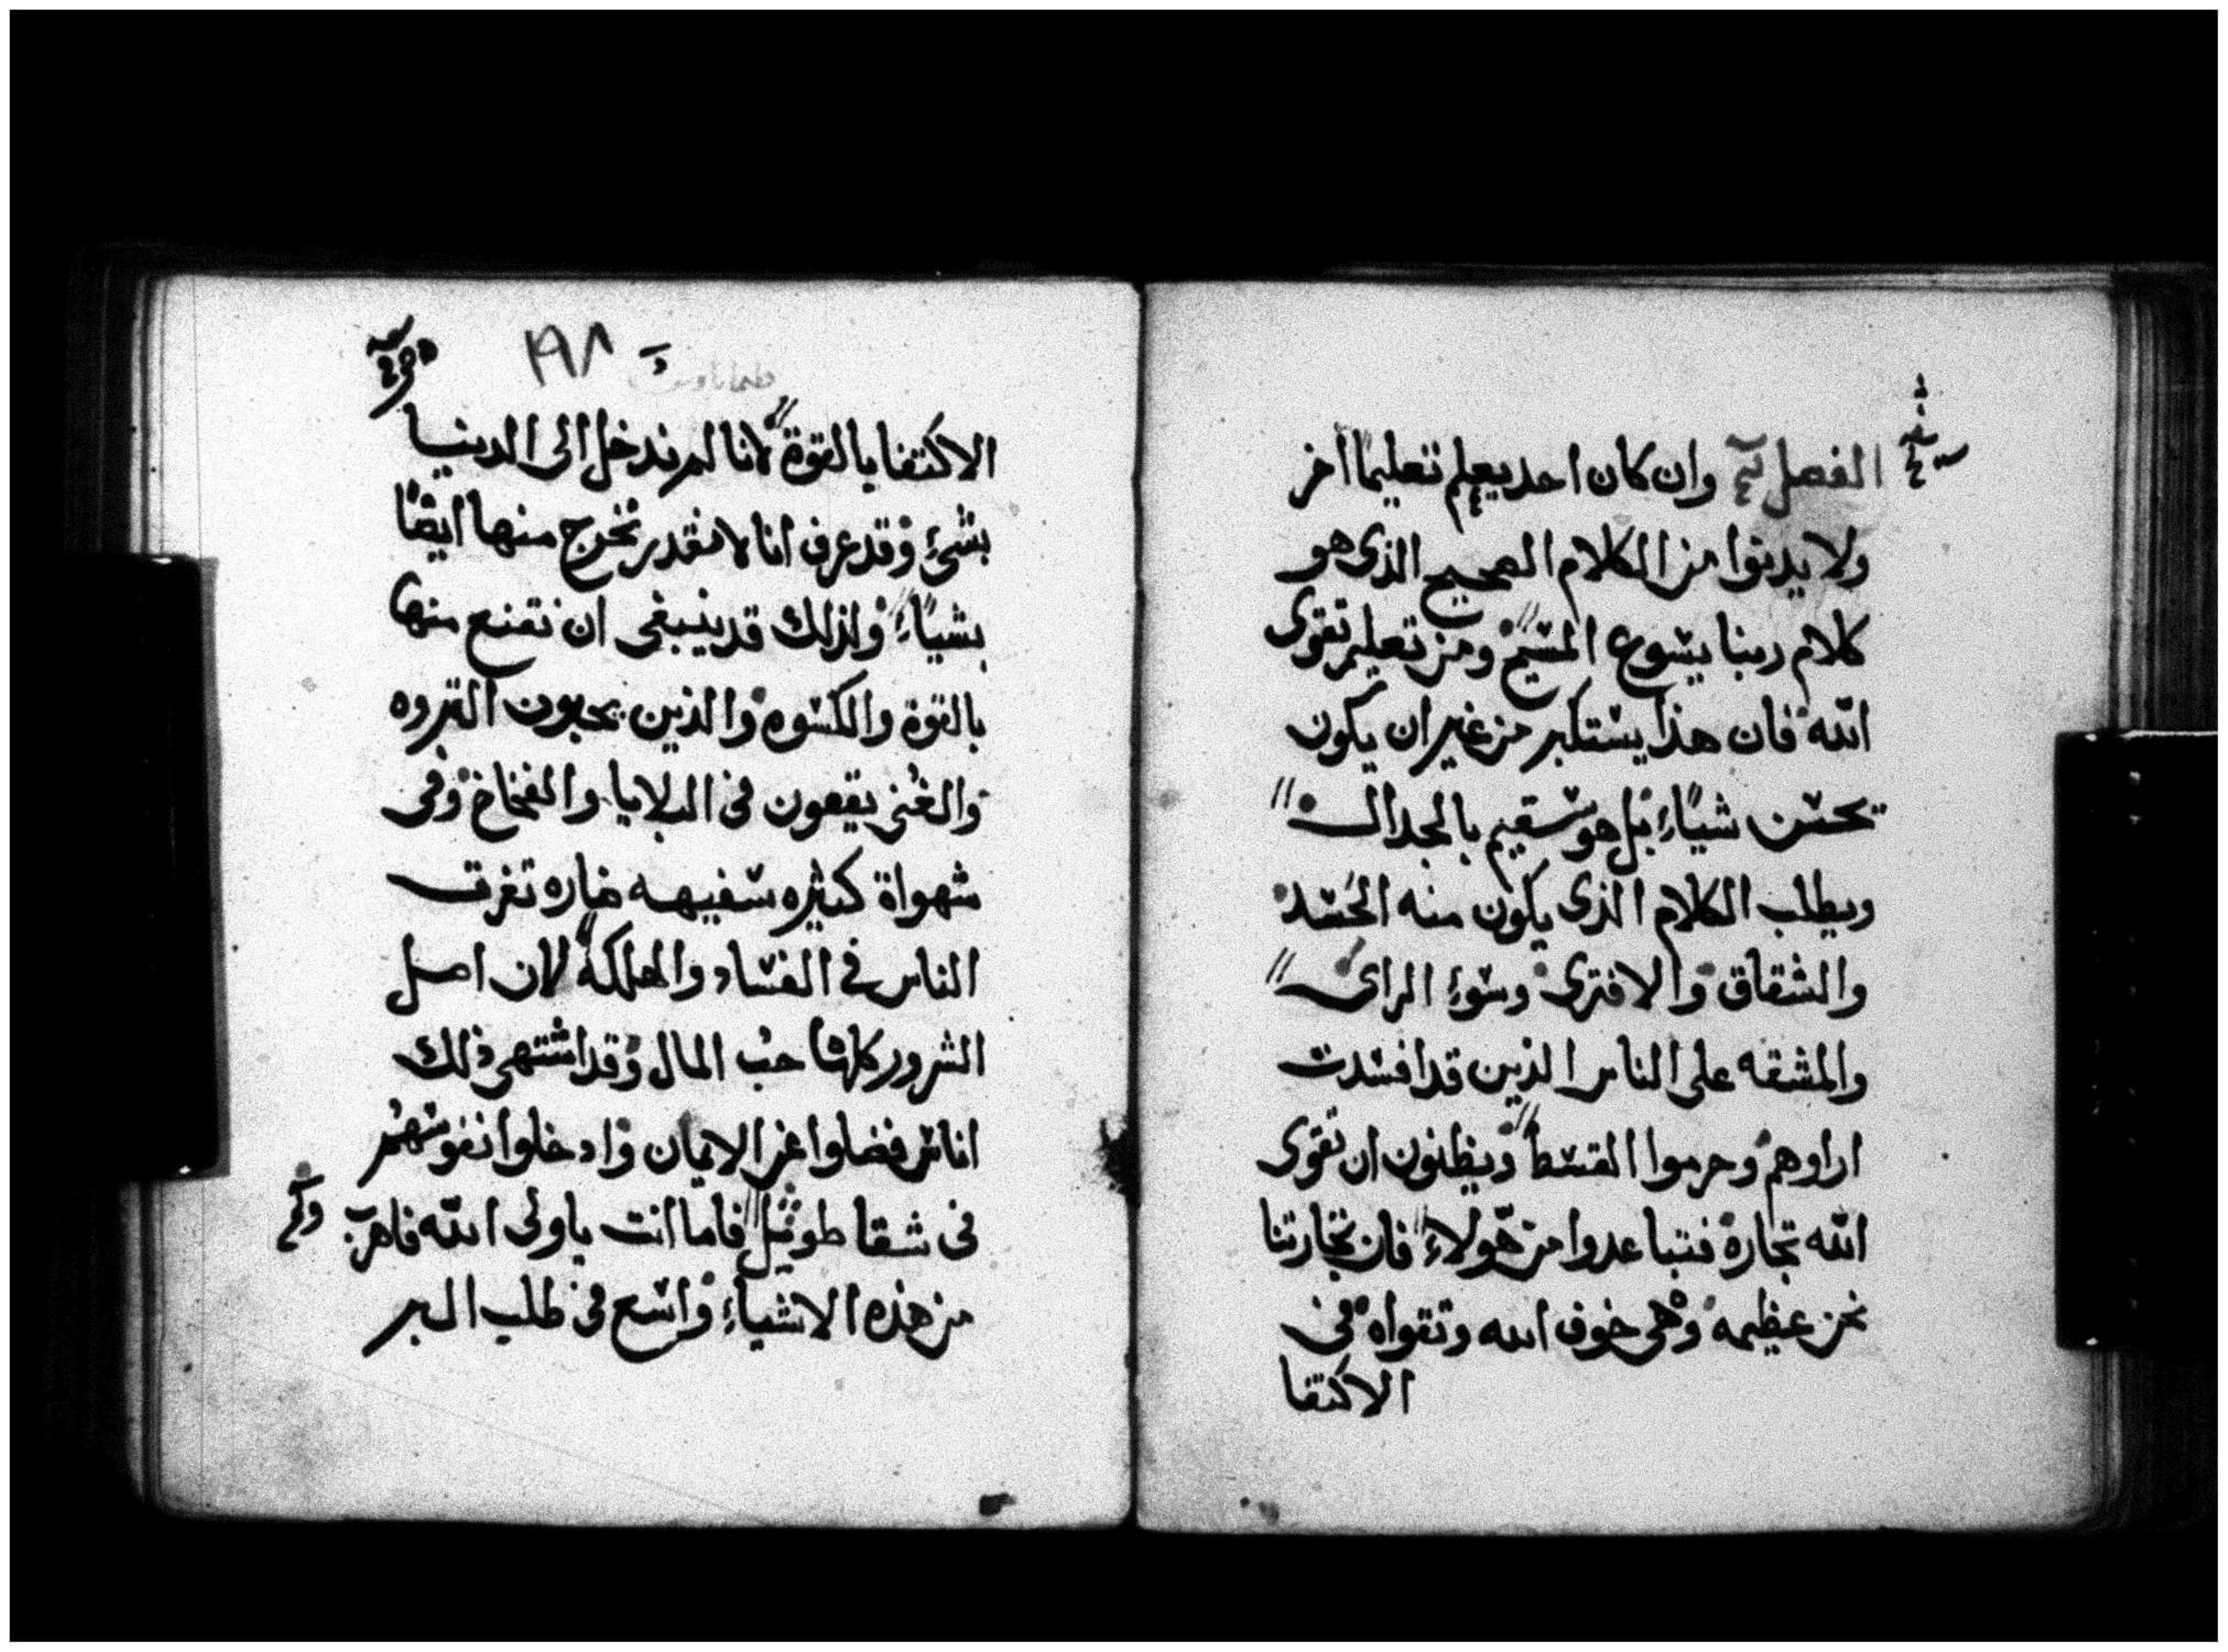 الفصل وان كان احد يعلم تعليما اخر
ولا يدنوا من الكلام الصحيح الذى هو
كلام ربنا يسوع المسيح ومن تعليم تقوى
الله فان هذا يستكبر من غير ان يكون
يحسن شياء بل هو سقيم بالجدال
ويطلب الكلام الذى يكون منه الحسد
والشقاق والافترى وسوء الراى
والمشقه على الناس الذين قد افسدت
اراوهم وحرموا القسط ويظنون ان تقوى
الله تجارة فتباعدوا من هولاء فان تجارتنا
نحن عظيمه وهى خوف الله وتقواه فى
الاكتفا
١٩٨
الاكتفا بالقوة لانا لم ندخل الى الدنيا
بشئ وقد عرف انا لا نقدر نخرج منها ايضا
بشياء ولذلك قد ينبغى ان نقنع منها
بالقوة والكسوه والذين يحبون الثروه
والغنى يقعون فى البلايا والفخاخ وفى
شهواة كثيره سفيهه ضاره تغرق
الناس فى الفساد والهلكة لان اصل
الشرور كلها حب المال وقد اشتهى ذلك
اناس فضلوا عن الايمان وادخلوا نفوسهم
فى شقا طويل فاما انت ياولى الله فاهرب
من هذه الاشياء واسع فى طلب البر